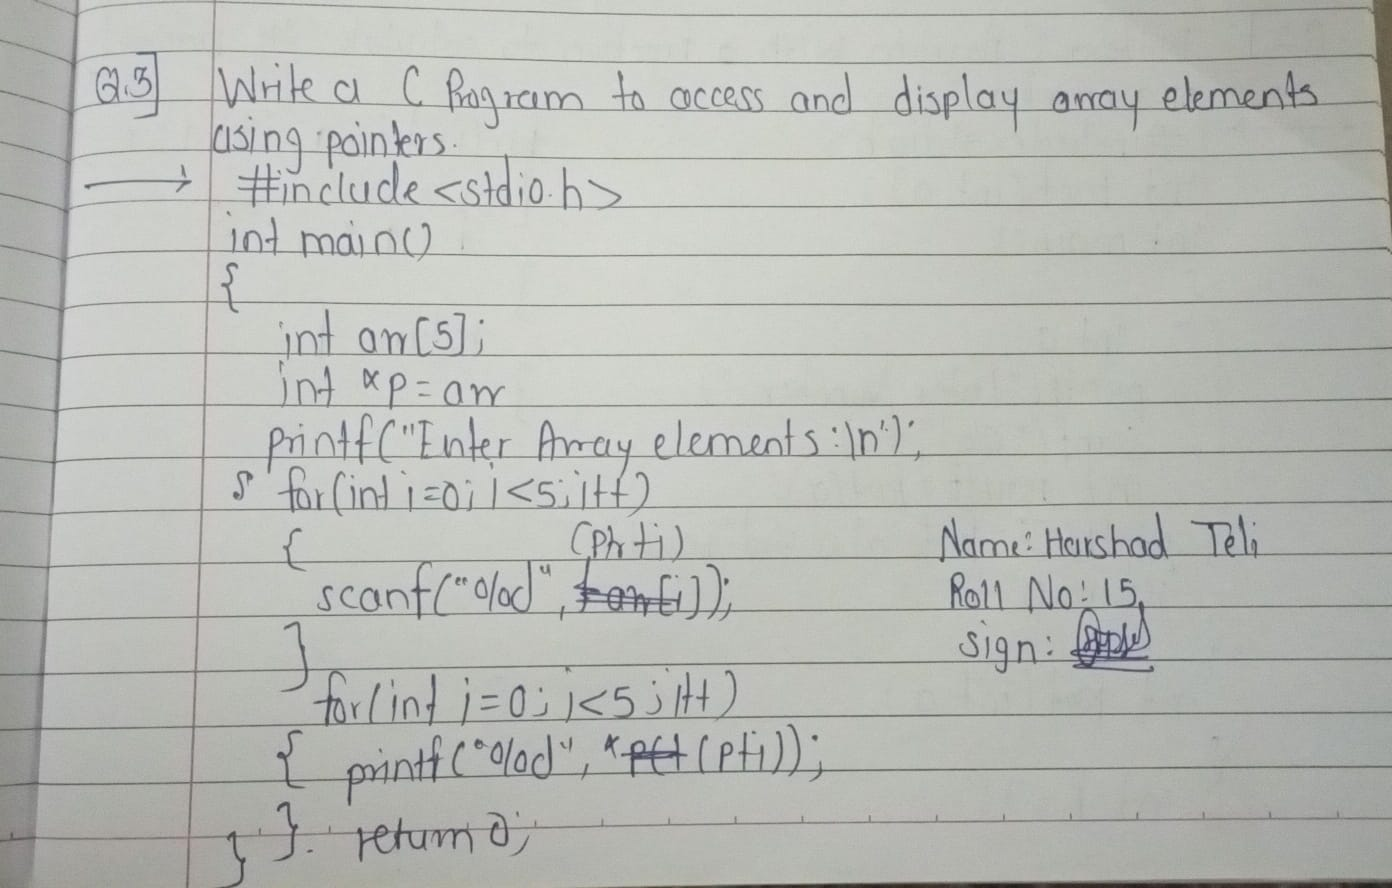 Q.3] Write a C Program to access and display array elements
using pointers.
→ #include <stdio.h>
int main()
{
int arr[5];
int *p = arr
printf("Enter Array elements:\n");
for(int i=0; i<5; i++)
{
scanf("%d", (p+i));
}
for(int i=0; i<5; i++)
{ printf("%d", *(p+i));
}. return 0;
}
Name: Harshad Teli
Roll No: 15
sign: